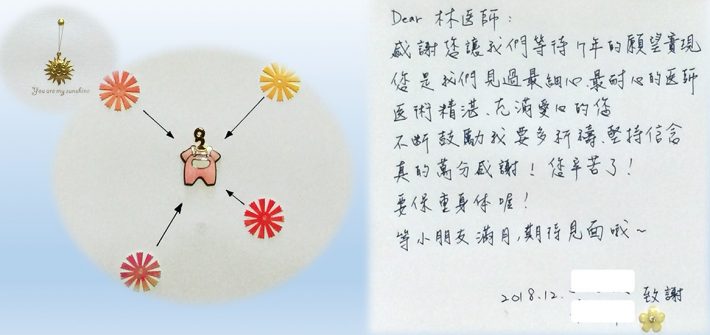 You are my sunshine
Dear 林医師：
感謝您讓我們等待7年的願望實現
您是我們見過最細心、最耐心的医師
医術精湛、充滿愛心的您
不斷鼓勵我要多祈禱、堅持信念
真的萬分感謝！您辛苦了！
要保重身体喔！
等小朋友滿月，期待見面哦～
2018.12.
致謝